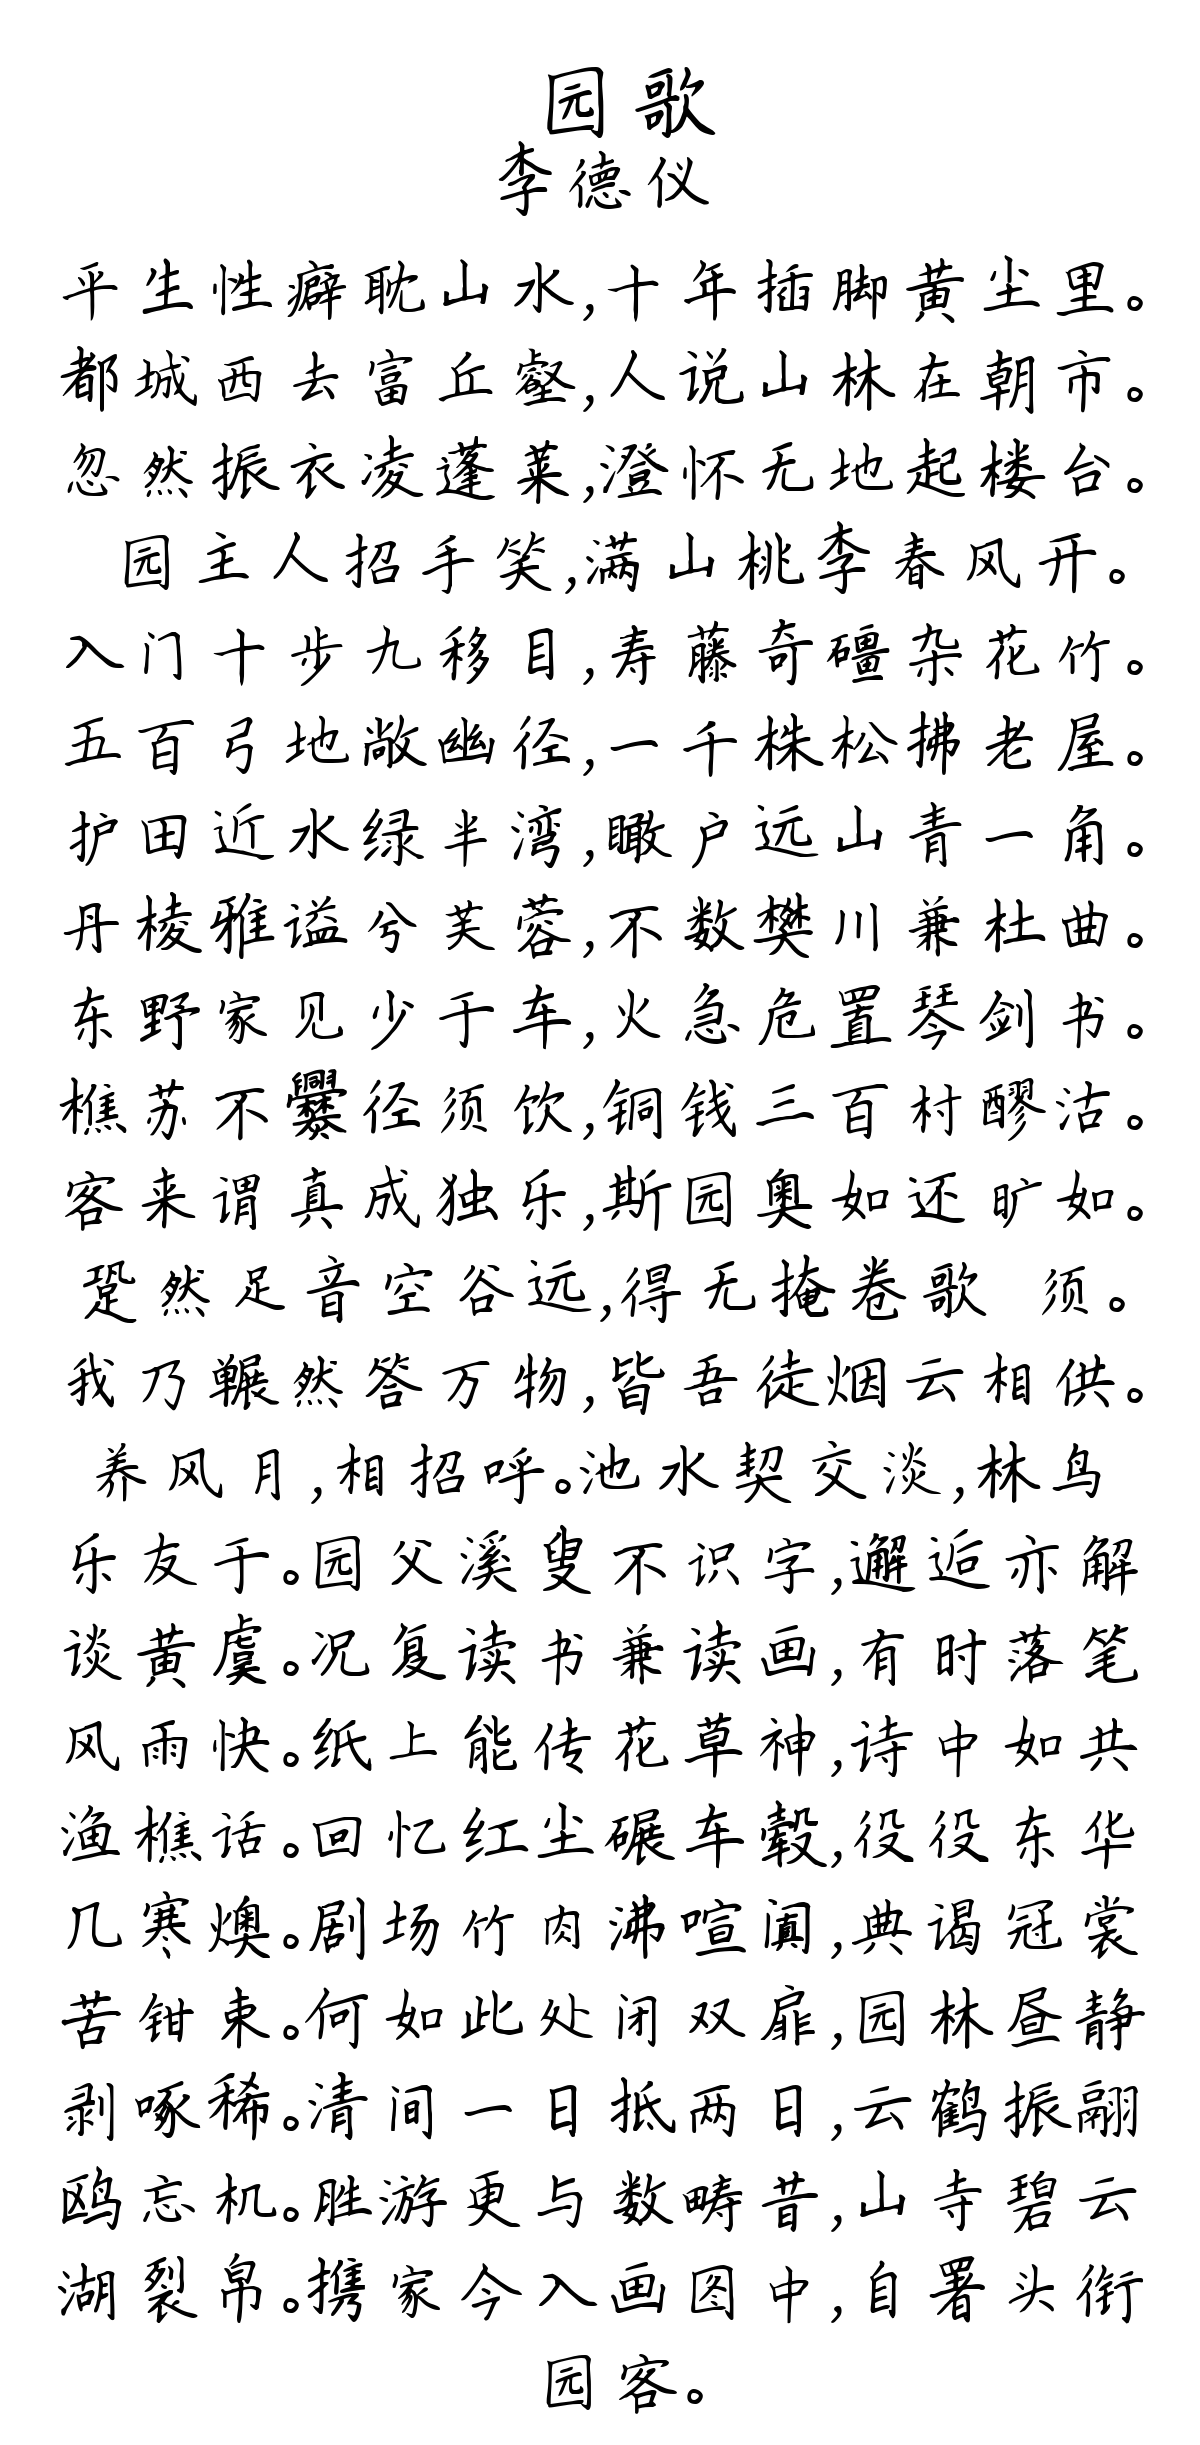 园歌
李德仪
平生性癖耽山水,十年插脚黄尘里。
都城西去富丘壑,人说山林在朝市。
忽然振衣凌蓬莱,澄怀无地起楼台。
园主人招手笑,满山桃李春风开。
入门十步九移目,寿藤奇礓杂花竹。
五百弓地敞幽径,一千株松拂老屋。
护田近水绿半湾,瞰户远山青一角。
丹棱雅谥兮芙蓉,不数樊川兼杜曲。
东野家见少于车,火急危置琴剑书。
樵苏不爨径须饮,铜钱三百村醪沽。
客来谓真成独乐,斯园奥如还旷如。
跫然足音空谷远,得无掩卷歌 须。
我乃冁然答万物,皆吾徒烟云相供。
养风月,相招呼。池水契交淡,林鸟
乐友于。园父溪叟不识字,邂逅亦解
谈黄虞。况复读书兼读画,有时落笔
风雨快。纸上能传花草神,诗中如共
渔樵话。回忆红尘碾车毂,役役东华
几寒燠。剧场竹肉沸喧阗,典谒冠裳
苦钳束。何如此处闭双扉,园林昼静
剥啄稀。清间一日抵两日,云鹤振翮
鸥忘机。胜游更与数畴昔,山寺碧云
湖裂帛。携家今入画图中,自署头衔
园客。